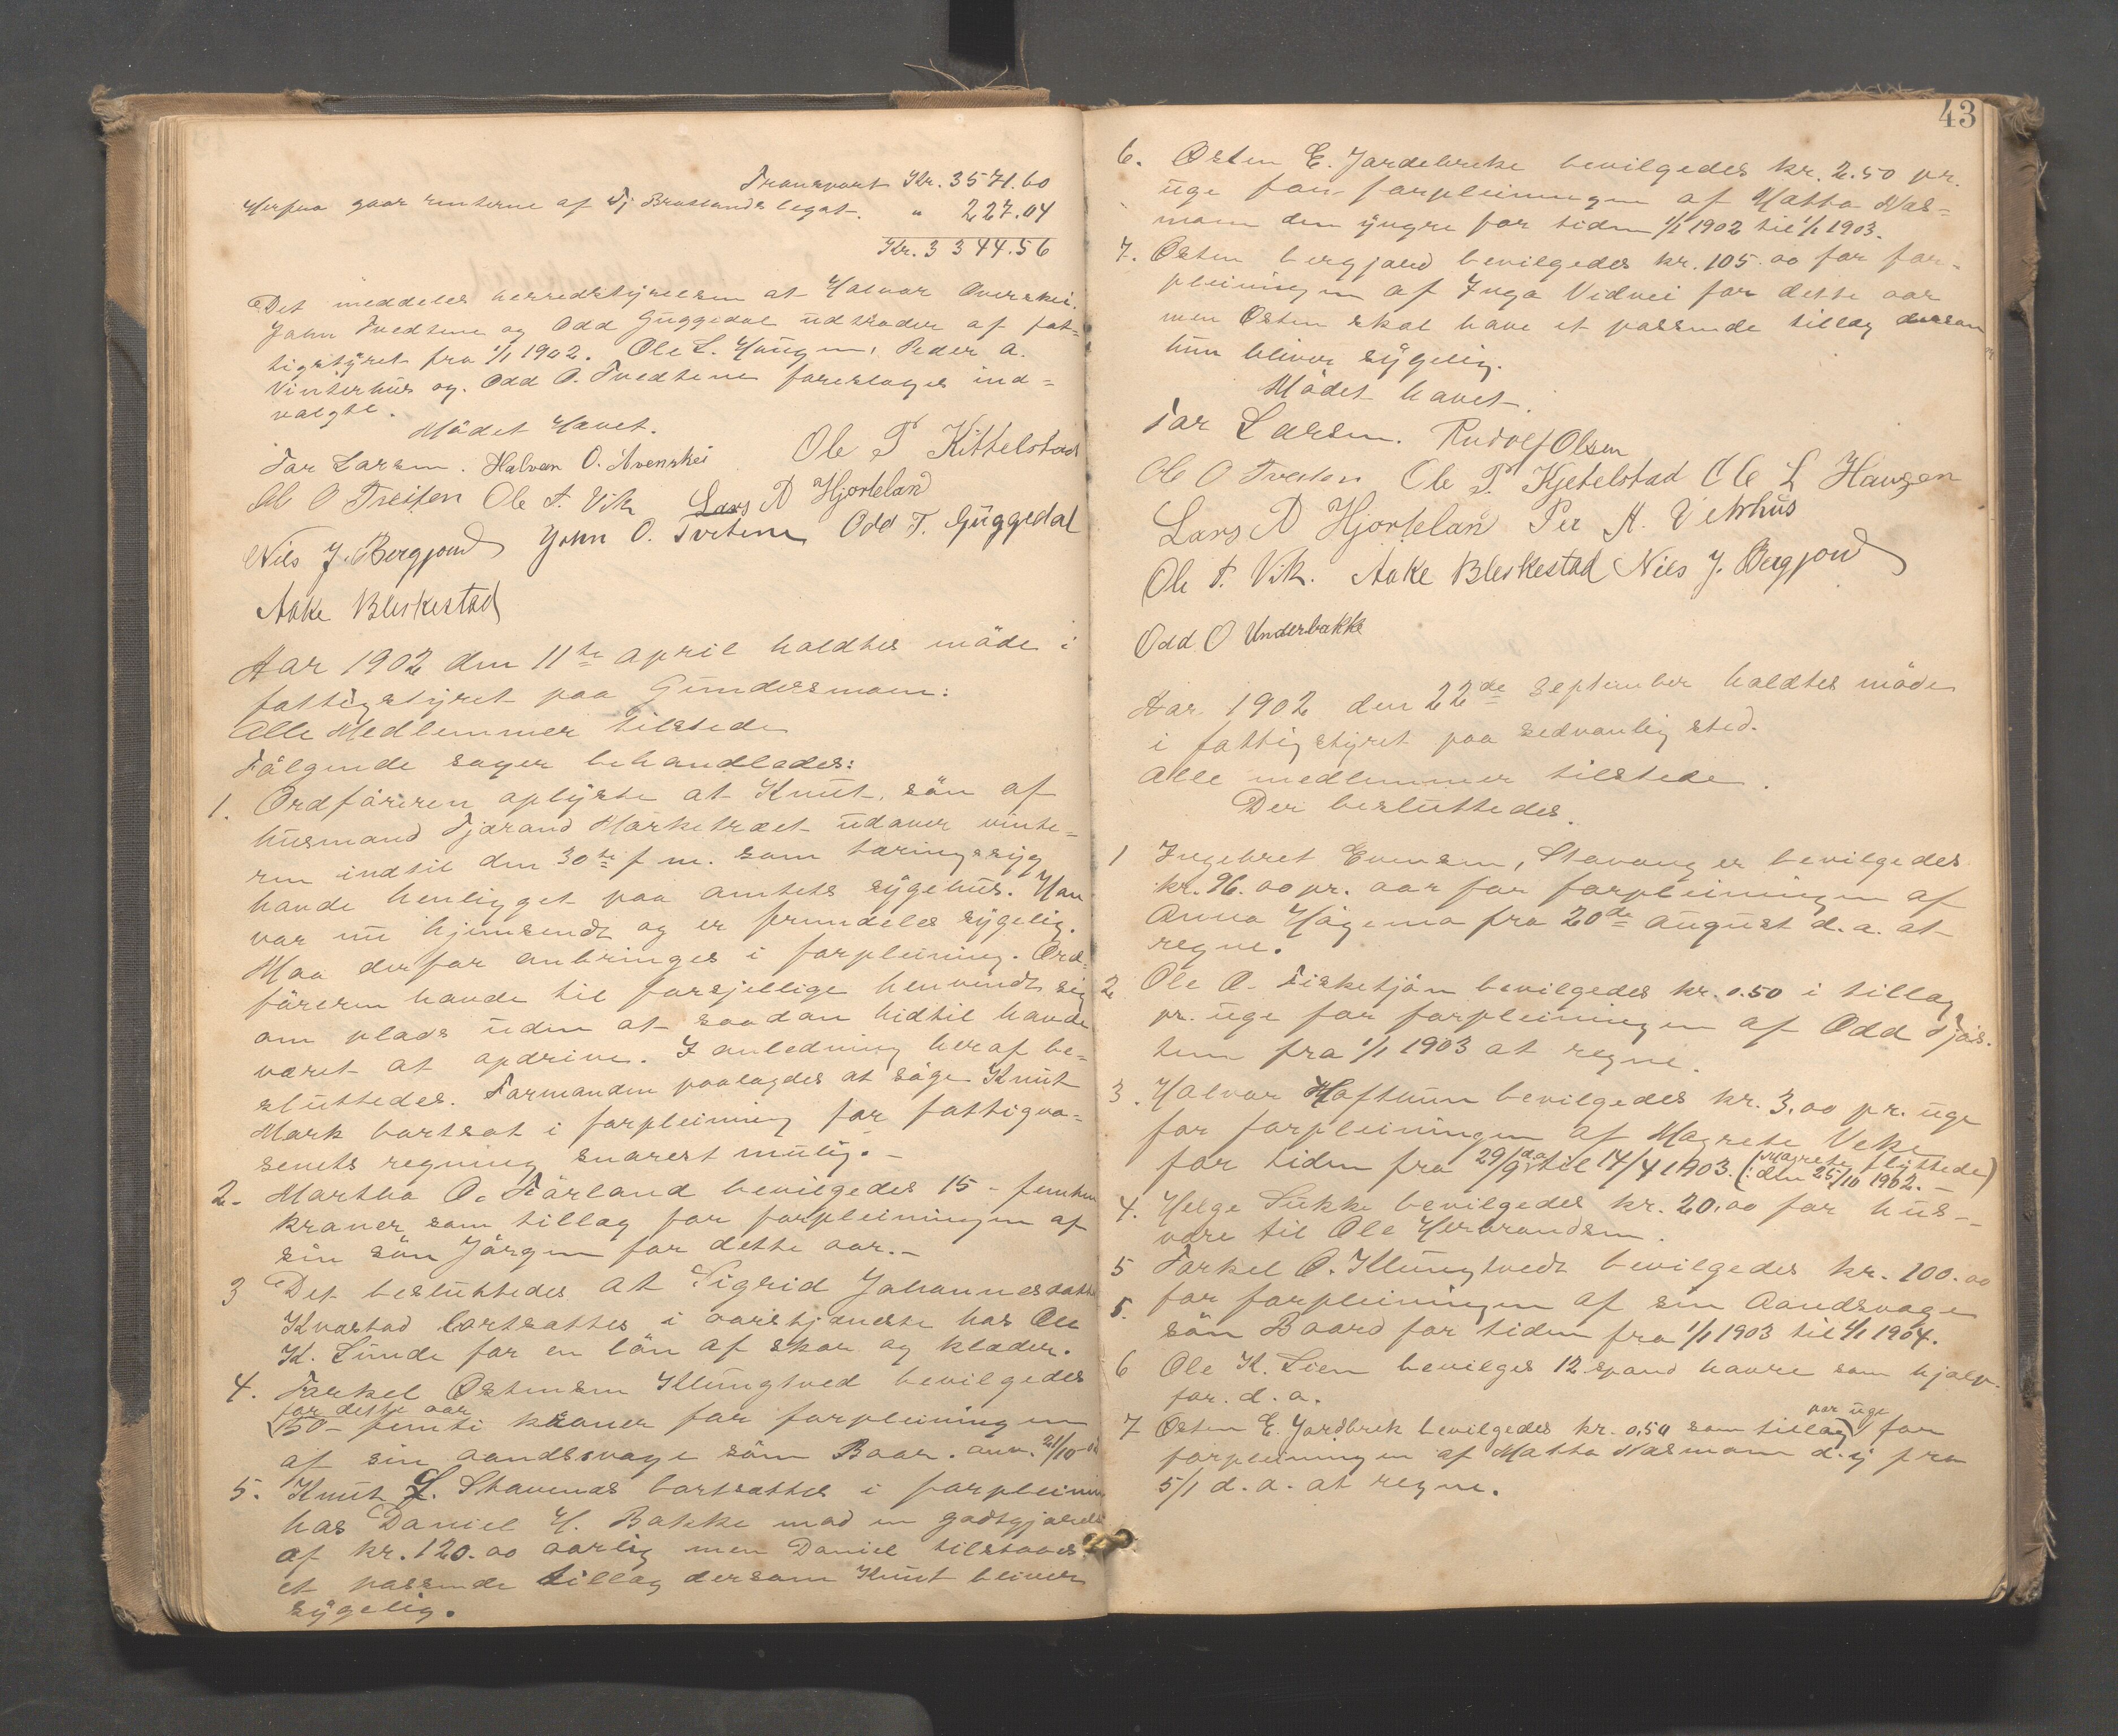 Transport Kr. 3571.60
Herfra gaar renterne af Tj Bratlands legat. " 227.04
Kr. 3344.56
Det meddeles herredstyrelsen at Halvar Overskei.
John Tvedtene og Odd Guggedal udtræder af fat=
tigstyret fra 1/1 1902. Ole L. Haugen, Peder A.
Vinterhus og Odd O. Tvedtene foreslages ind=
valgte.
Mödet Hævet.
Tor Larsen. Halvor O. Ovenskei Ole T Kittelstad
Ole O Treiten Ole T. Vik Lars A Hjortland
Nils J. Bergjord John O. Tvetene Odd T. Guggedal
Aake Bleskestad
Aar 1902 den 11te april holdtes möde i
fattigstyret paa Gundersmoen:
Alle Medlemmer tilstede
Fölgende sager behandledes:
1. Ordföreren oplyste at Knut, sön af
husmand Tjærand Marketræet udover vinte=
ren indtil den 30te f m. som tæringssyg
havde henligget paa amtets sygehus. Han
var nu hjemsendt og er fremdeles sygelig.
Maa derfor anbringes i forpleining. Ord=
föreren havde til forsjellige henvendt sig
om plads uden at saadan hidtil havde
været at opdrive. I anledning heraf be=
sluttedes. Formanden paalagdes at söge Knut
Mark bortsat i forpleining for fattigvæ=
senets regning snarest mulig.-
2. Martha O. Färland bevilgedes 15 - femten
kroner som tillæg for forpleiningen af
sin sön Jörgen for dette aar.-
3 Det besluttedes at Sigrid Johannesdatter
Kvæstad bortsættes i aarstjeneste hos Ole
K. Lunde for en lön af skor og klæder.
4. Torkel Östensen Klungtved bevilgedes
for dette aar
50 - femti kroner for forpleiningen
af sin aandssvage sön Baar. anv. 21/10-02
5. Knut L. Stavenæs bortsættes i forpleining
hos Daniel H. Bakke mod en godtgjörelse
af kr. 120.00 aarlig men Daniel tilstaaes
et passende tillæg dersom Knut bliver
sygelig.
43
6. Östen E. Jordebrekke bevilgedes kr. 2.50 pr.
uge for forpleiningen af Matta Næs=
moen den yngre for tiden 1/1 1902 til 1/1 1903.
7. Östen bergjord bevilgedes kr. 105.00 for for-
pleiningen af Inga Vidvei for dette aar
men Östen skal have et passende tillæg dersom
hun bliver sygelig.
Mödet hævet.
Tor Larsen. Rudolf Olsen
Ole O Treiten Ole T. Kjetelstad Ole L Haugen
Lars A Hjortland Per A. Vetrhus
Ole T. Vik. Aake Bleskestad Nils J. Bergjord
Odd O Underbakke
Aar 1902 den 22de september holdtes möde
i fattigstyret paa sedvanlig sted.
Alle medlemmer tilstede.
Der besluttedes.
1 Ingebret Evensen, Stavanger bevilgedes
kr. 96.00 pr. aar for forpleiningen af
Anna Högemo fra 20de august d.a. at
regne.
2 Ole O. Fisketjön bevilgedes kr. 0.50 i tillæg
pr. uge for forpleiningen af Odd Tjös-
tem fra 1/1 1903 at regne.
3. Halvor Haftun bevilgedes kr. 3.00 pr. uge
for forpleiningen af Magrete Veke
for tiden fra 29/9 da til 14/4 1903. (: Magrete flyttede
den 25/10 1902.-)
4. Helge Lukke bevilgedes kr. 20.00 for hus-
være til Ole Herbrandsen.
5 Torkel O. Klungtvedt bevilgedes kr. 100.00
5. for forpleiningen af sin Aandsvage
sön Baard for tiden fra 1/1 1903 til 1/1 1904.
6 Ole K. Lien bevilges 12 spand havre som hjælp
for. d. a.
7 Östen E. Jordbrek bevilgedes kr. 0,50 som tillæg per uge for
forpleiningen af Matta Næsmoen d.y fra
5/1 d. a. at regne.